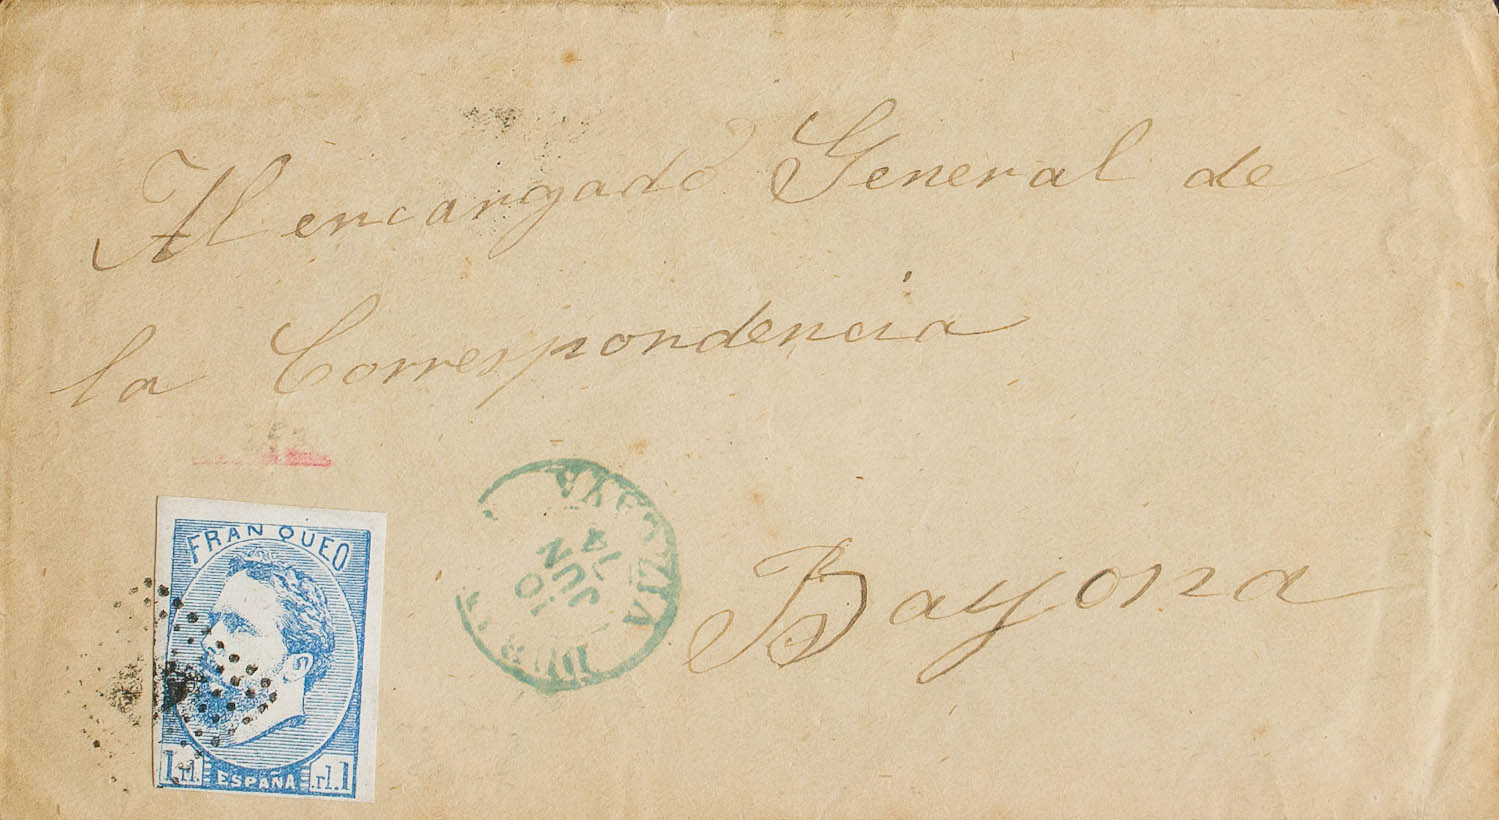 Al encargado General de
la Correspondencia
Bayona
FRANQUEO
1 rl. ESPAÑA .rl. 1
JUL
74